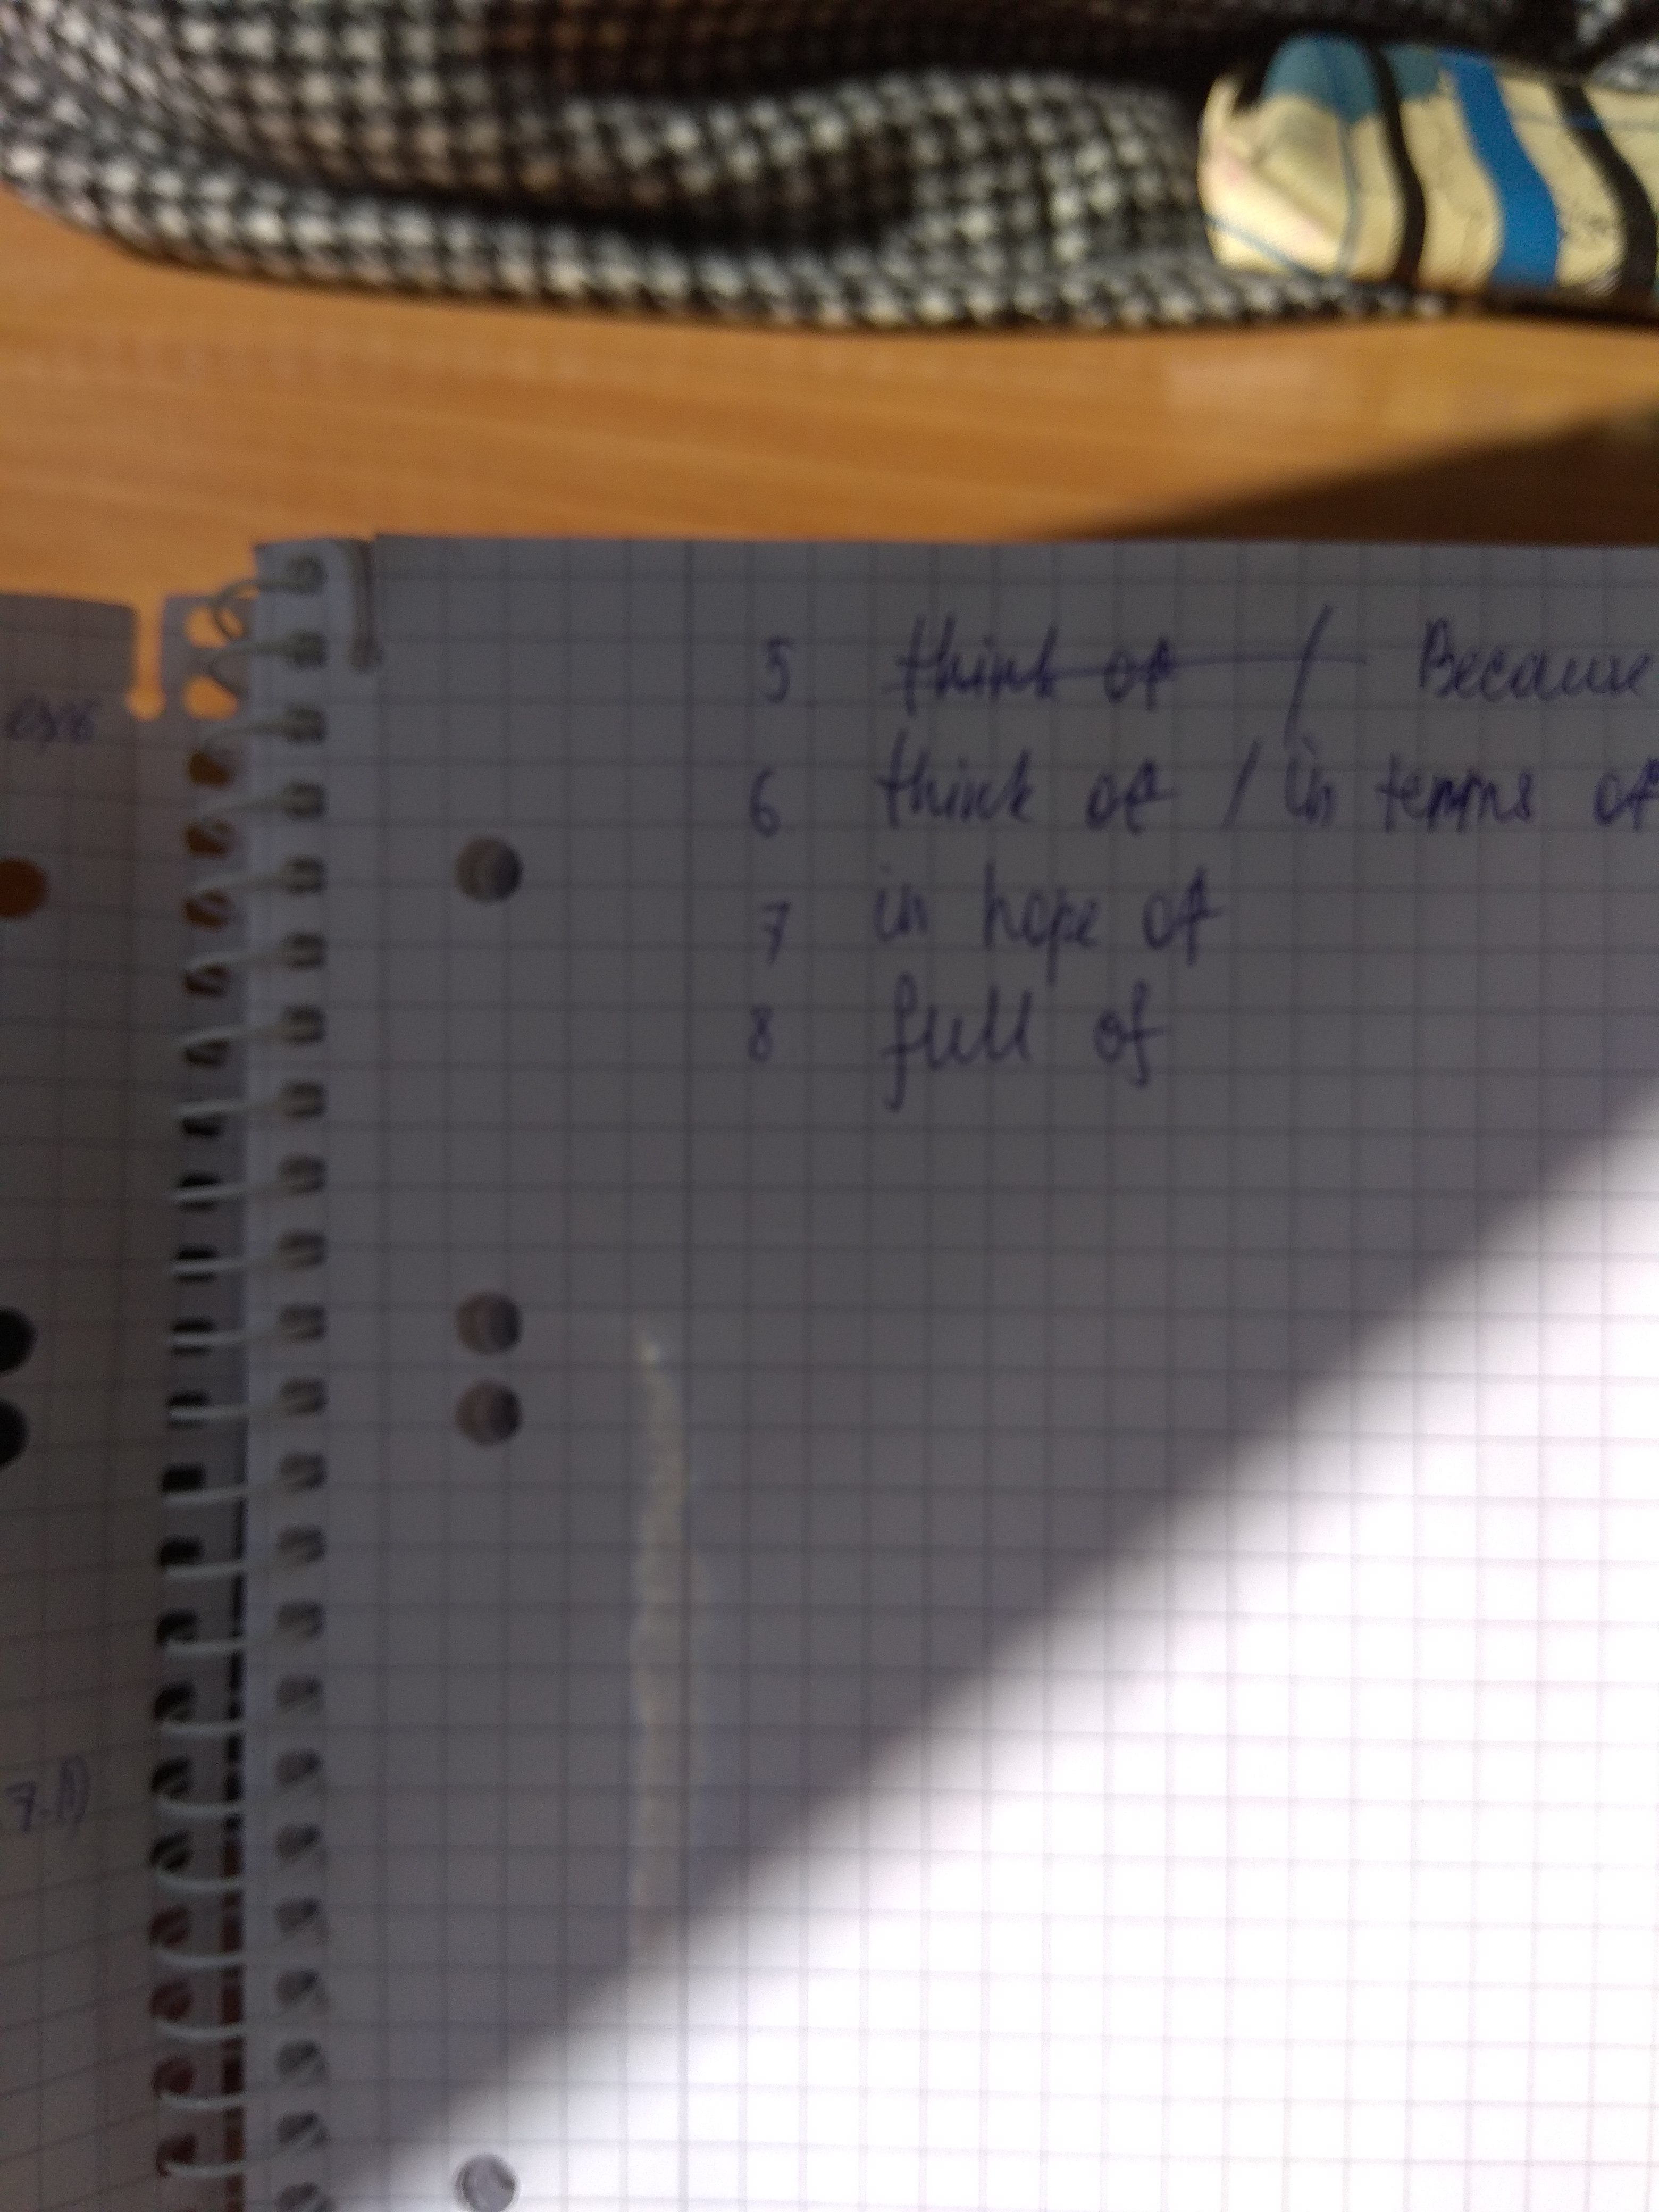 5 think of / Because
6 think of / in terms of
7 in hope of
8 full of
7.1)